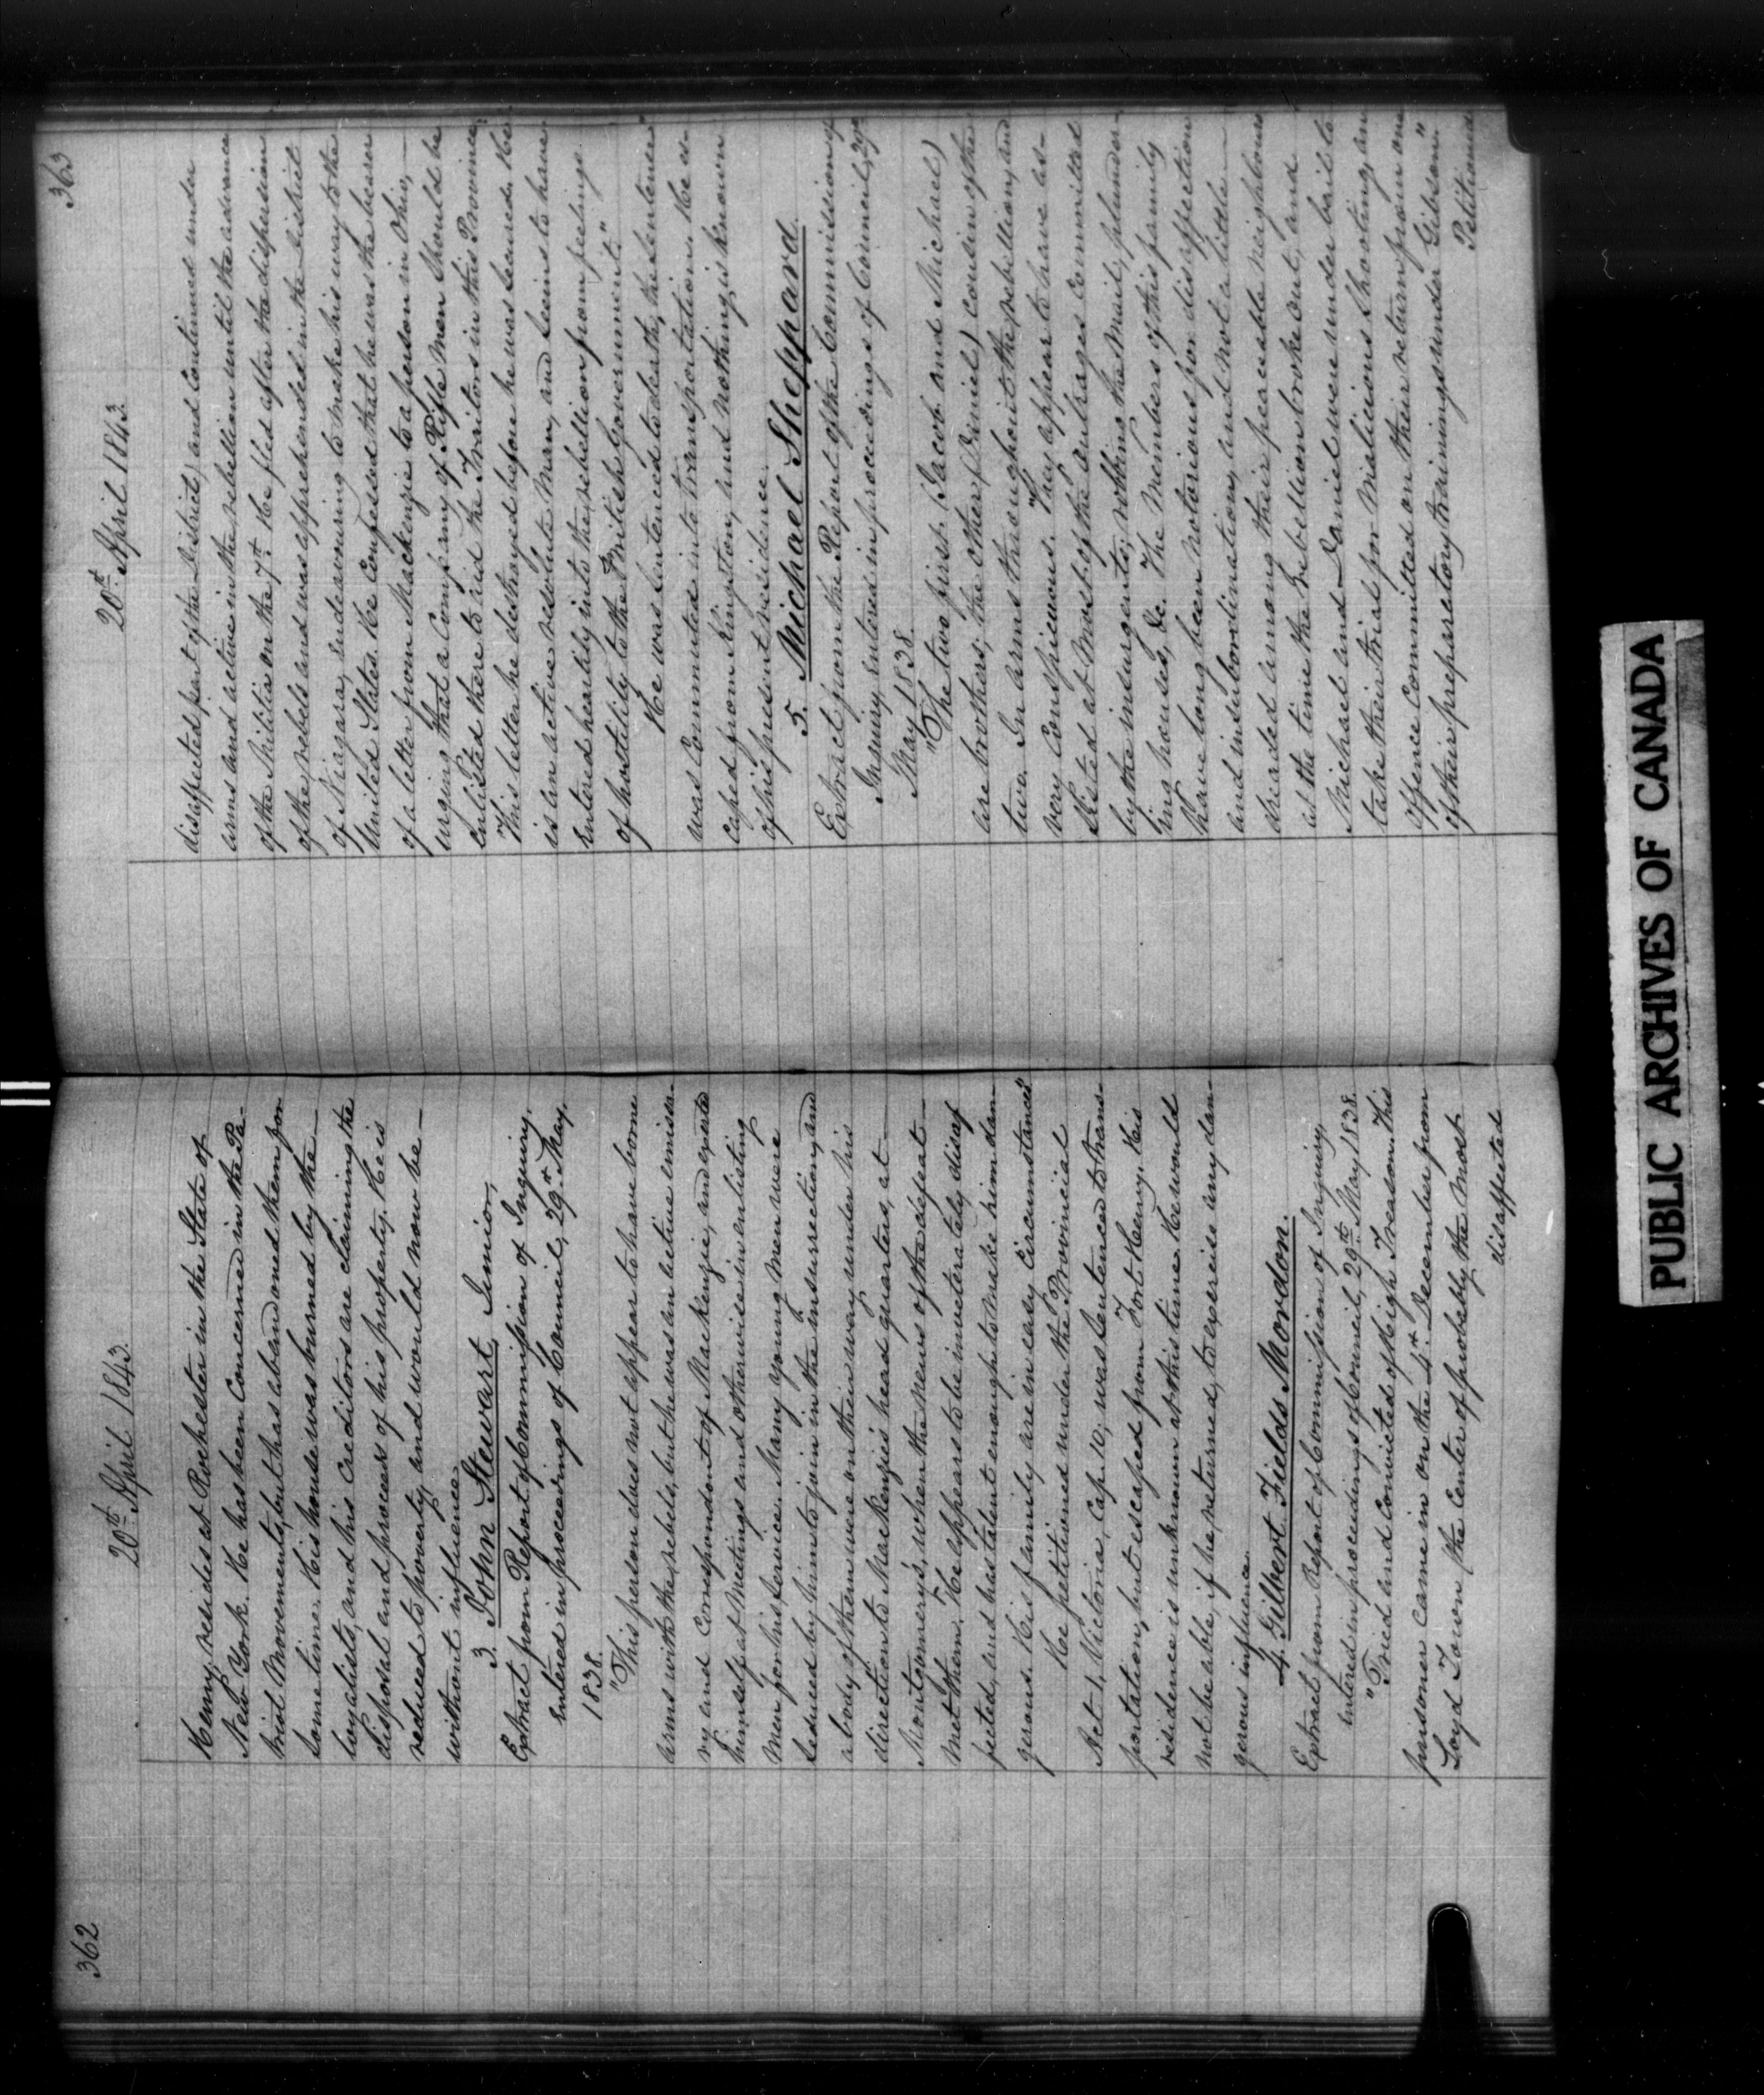 362
20th April 1843.
Henry, resides at Rochester in the State of
New York. He has been Concerned in the Pa-
triot Movements, but has abandoned them for
some time. His house was burned by the
loyalists, and his Creditors are claiming the
disposal and process of his property. He is
reduced to poverty, and would now be
without influence.
3. John Stewart, Junior,
Extract from Report of Commission of Inquiry,
entered in proceedings of Council, 29th May,
1838.
"This person does not appear to have borne
arms with the rebels, but he was an active emissa-
ry and correspondent of Mackenzie, and exerted
himself at Meetings and otherwise in enlisting
Men for his service. Many young men were
seduced by him to join in the insurrection, and
a body of them were on their way under his
direction to Mackenzie's head quarters, at
Montgomery's, when the news of the defeat
met them. He appears to be inveterately disaf-
fected, and has talent enough to make him dan-
gerous. His family are in easy Circumstances"
He petitioned under the Provincial
Act 1, Victoria, Cap. 10; was sentenced to trans-
portation, but escaped from Fort Henry. His
residence is unknown at this time. He would
not be able, if he returned, to exercise any dan-
gerous influence.
4. Gilbert Fields Mordon.
Extract from Report of Commission of Inquiry,
entered in proceedings of Council, 29th May, 1838.
"Tried and Convicted of High Treason. This
prisoner came in on the 4th December from
Loyd Town (the Center of probably the most
disaffected
363
20th April 1843.
disaffected part of the District) and Continued under
arms and active in the rebellion until the advance
of the Militia on the 7th. He fled after the dispersion
of the rebels and was apprehended in the District
of Niagara, endeavouring to make his way to the
United States. He Confessed that he was the bearer
of a letter from Mackenzie to a person in Ohio,
urging that a Company of Rifle men should be
enlisted there to aid the Traitors in this Province.
This letter he destroyed before he was secured. He
is an active resolute Man, and seems to have
entered heartily into the rebellion from feelings
of hostility to the British Government."
He was sentenced to death; this sentence
was Commuted into transportation. He es-
caped from Kingston, and nothing is known
of his present residence.
5. Michael Sheppard.
Extract from the Report of the Commission of
Inquiry, entered in proceedings of Council, 29th
May 1838.
"The two first (Jacob and Michael)
are brothers; the other (Daniel) cousin of the
two. In arms throughout the rebellion, and
very Conspicuous. They appear to have as-
sisted at Most of the outrages Committed
by the insurgents; robbing the Mail, plunder-
ing houses, &c. The Members of this family
have long been notorious for disaffection
and insubordination, and not a little
dreaded among their peaceable neighbours
At the time the Rebellion broke out,
Michael and Daniel were under bail to
take their trial for Malicious Shooting, an
offence Committed on their return from one
of their preparatory trainings under Gibson."
Petitioned
PUBLIC ARCHIVES OF CANADA